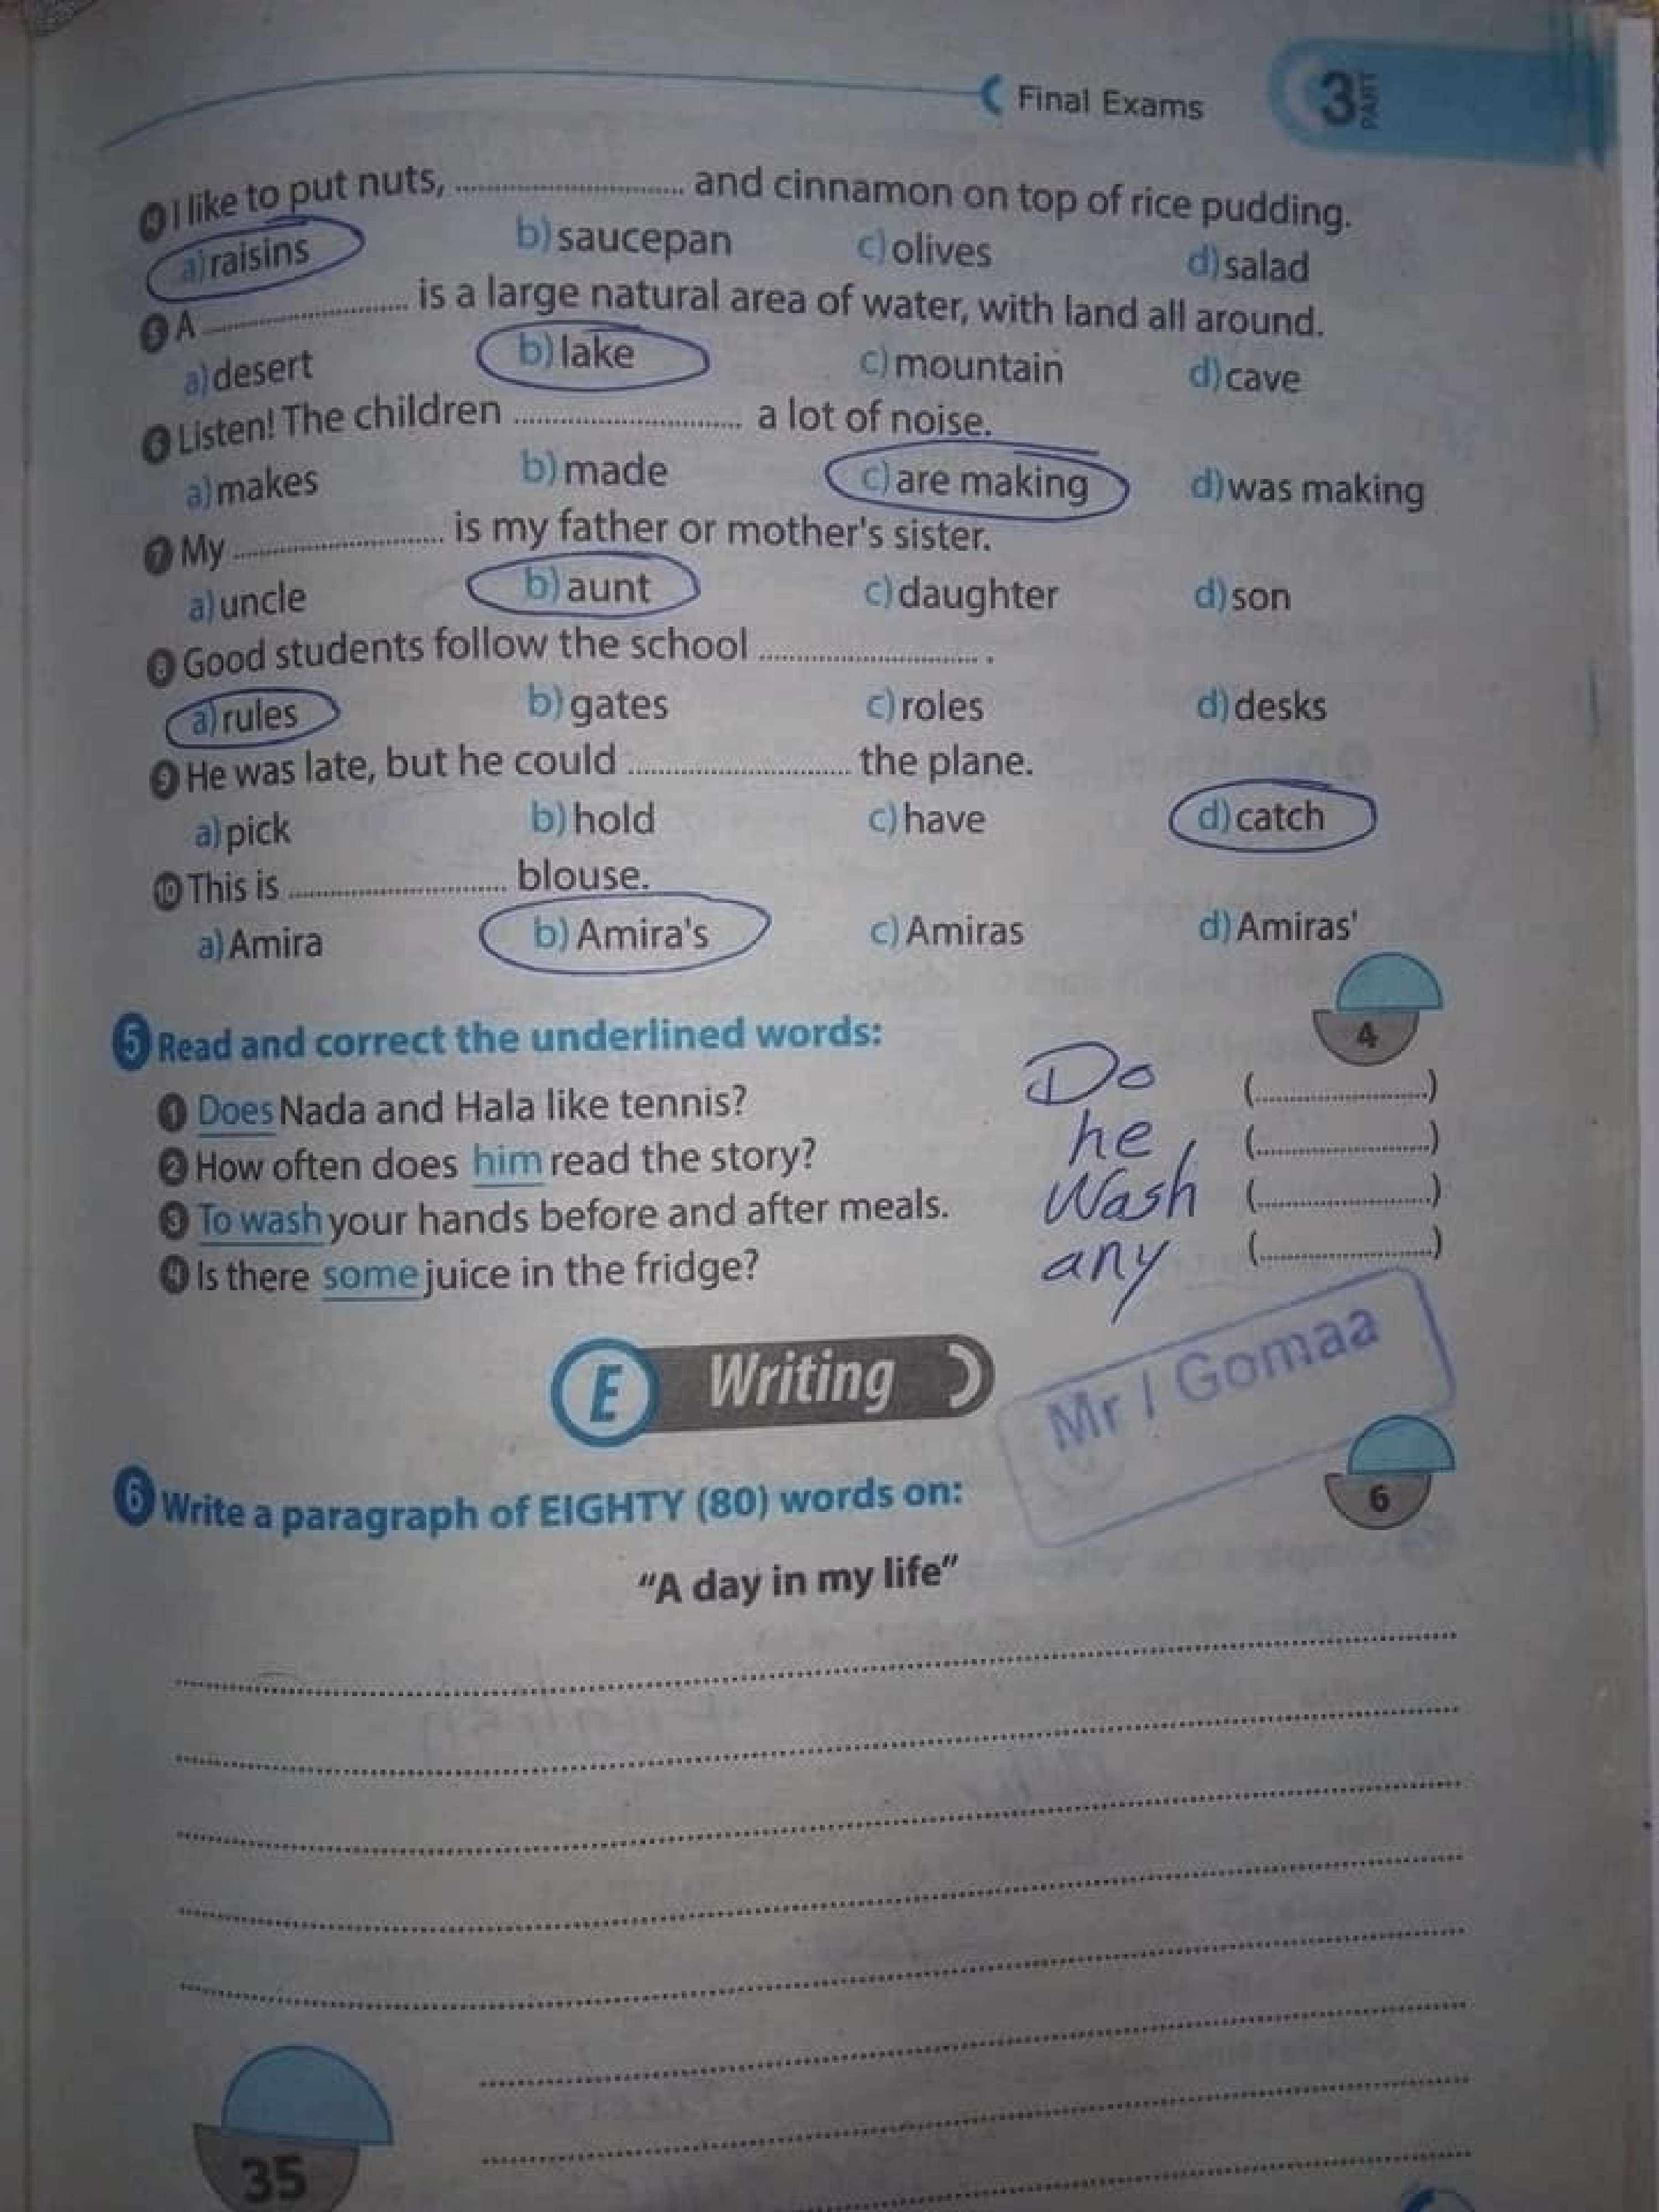 Final Exams
3 PART
4 I like to put nuts, .............................. and cinnamon on top of rice pudding.
a) raisins b) saucepan c) olives d) salad
5 A .............................. is a large natural area of water, with land all around.
a) desert b) lake c) mountain d) cave
6 Listen! The children .............................. a lot of noise.
a) makes b) made c) are making d) was making
7 My .............................. is my father or mother's sister.
a) uncle b) aunt c) daughter d) son
8 Good students follow the school .............................. .
a) rules b) gates c) roles d) desks
9 He was late, but he could .............................. the plane.
a) pick b) hold c) have d) catch
10 This is .............................. blouse.
a) Amira b) Amira's c) Amiras d) Amiras'
4
5 Read and correct the underlined words:
1 Does Nada and Hala like tennis? Do (..............................)
2 How often does him read the story? he (..............................)
3 To wash your hands before and after meals. Wash (..............................)
4 Is there some juice in the fridge? any (..............................)
E Writing
Mr / Gomaa
6 Write a paragraph of EIGHTY (80) words on:
6
"A day in my life"
35